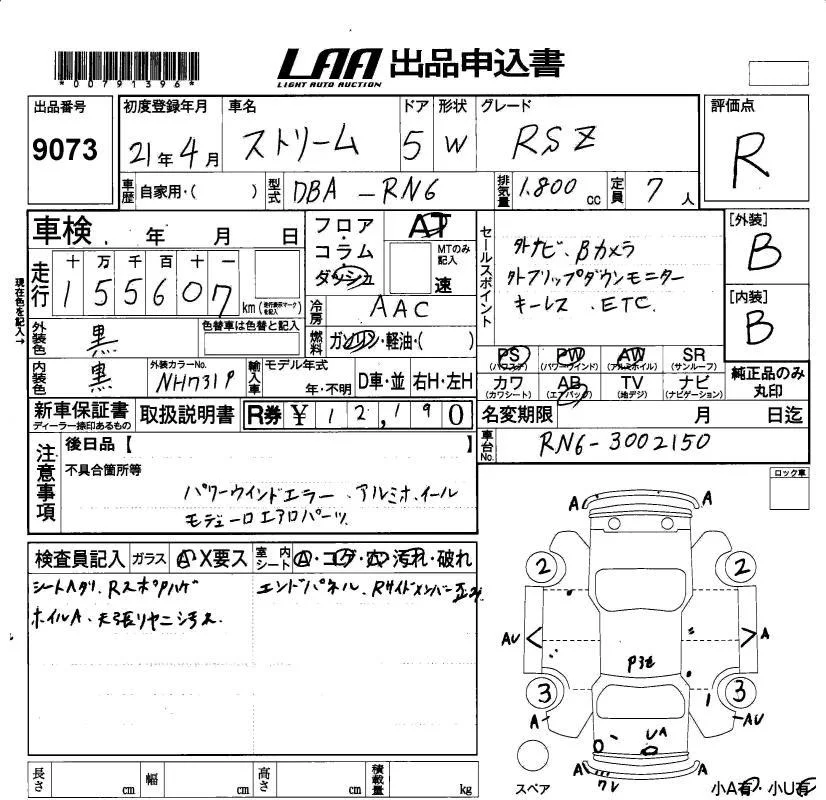 *00791396*
LAA 出品申込書
LIGHT AUTO AUCTION
出品番号 初度登録年月 車名 ドア 形状 グレード 評価点
9073 21年4月 ストリーム 5 W RSZ R
車歴 自家用・( ) 型式 DBA-RN6 排気量 1.800cc 定員 7人
車検 . 年 月 日
フロア AT
コラム MTのみ記入
ダッシュ 速
セールスポイント
外ナビ、Bカメラ
外フリップダウンモニター
キーレス.ETC.
[外装]
B
[内装]
B
現在色を記入→
走行 十 万 千 百 十 一
155607 km (走行表示マークを記入)
冷房 AAC
外装色 黒 色替車は色替と記入
燃料 ガソリン・軽油・( )
内装色 黒 外装カラーNo. NH731P
輸入車 モデル年式
年・不明 D車・並 右H・左H
PS (パワステ) PW (パワーウインド) AW (アルミホイル) SR (サンルーフ)
カワ (カワシート) AB (エアバッグ) TV (地デジ) ナビ (ナビゲーション)
純正品のみ丸印
新車保証書 ディーラー捺印あるもの 取扱説明書 R券 ¥ 12,190
名変期限 月 日迄
車台No. RN6-3002150
注意事項
後日品【 】
不具合箇所等
パワーウインドエラー.アルミホイール
モデューロエアロパーツ
ロック車
検査員記入 ガラス A・X要ス 室内シート A・コゲ・穴・汚れ・破れ
シートヘタリ.Rスポアルゲ エンドパネル.Rサイドメンバー
ホイルA.天張リヤニ汚え
A A
2 2
AU A
P3セ
3 3
A AU
UA
A A
ワレ
スペア
小A有・小U有
長さ cm 幅 cm 高さ cm 積載量 kg